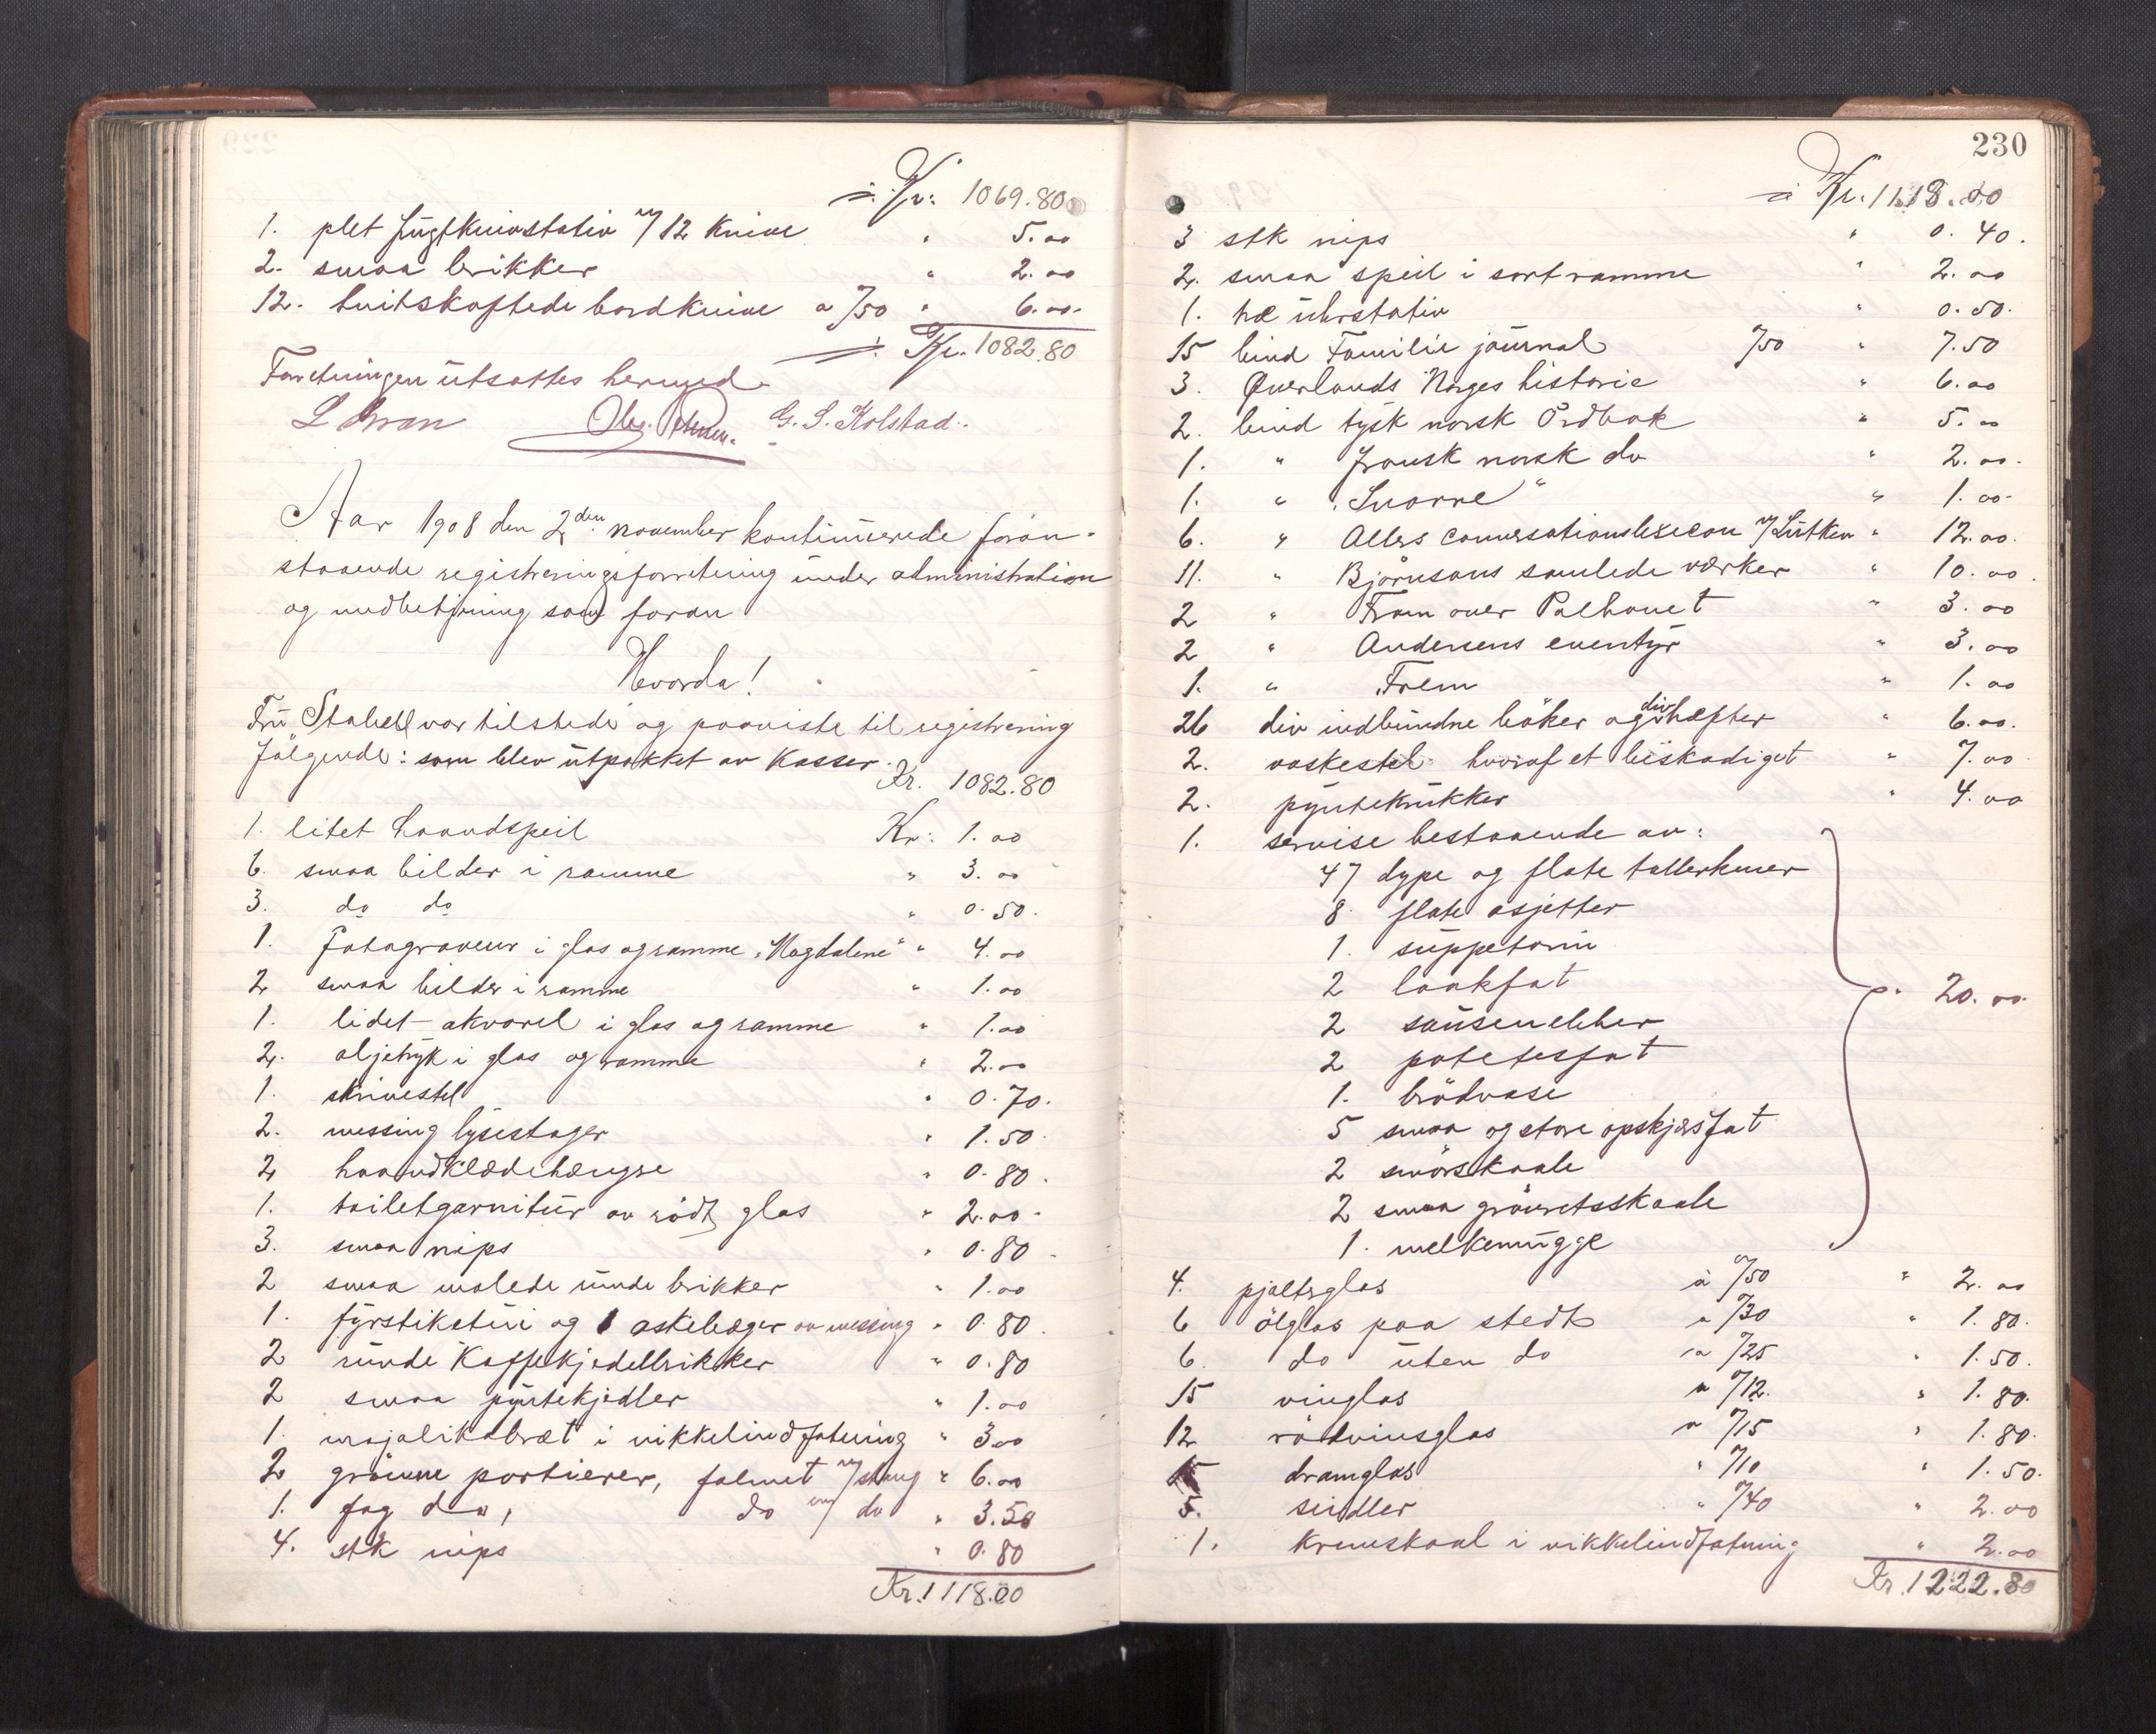 ÷ Kr: 1069.80
1. plet frugtknivstativ m/12 knive " 5.00
2. smaa brikker " 2.00
12. hvitskaftede bordknive a /50 " 6.00
÷ Kr. 1082.80
Forretningen utsattes hermed.
Olsen. G. S. Kolstad.
Aar 1908 den 2den november kontinuerede foran-
staaende registreringsforretning under administration
og medbetjening som foran
Hvorda!
Fru Stabell var tilstede og paaviste til registrering
følgende: som blev utpakket av Kasser.
Kr. 1082.80
1. litet haandspeil Kr: 1.00
6. smaa bilder i ramme " 3.00
3. do do " 0.50.
1. Fotograveur i glas og ramme "Magdalene" " 4.00
2 smaa bilder i ramme " 1.00
1. lidet akvarel i glas og ramme " 1.00
2. oljetryk i glas og ramme " 2.00
1. skrivestel " 0.70.
2. messing lysestager " 1.50
2 haandklædehængse " 0.80.
1. toiletgarnitur av rødt glas " 2.00
3. smaa nips " 0.80
2 smaa malede runde brikker " 1.00
1. fyrstiketui og 1 askebæger av messing " 0.80.
2 runde Kaffekjedelbrikker " 0.80
2 smaa pyntekjedler " 1.00
1. majolikabræt i nikkelindfatning " 3.00
2 grønne portierer, falmet m/stang " 6.00
1. fag do, do m/ do " 3.50
4. stk nips " 0.80
Kr. 1118.00
230
÷ Kr. 1118.00
3 stk nips " 0.40.
2. smaa speil i sort ramme " 2.00
1. træ uhrstativ " 0.50.
15 bind Familie journal /50 " 7.50
3. Øverlands Norges historie " 6.00
2. bind tysk norsk Ordbok " 5.00
1. " fransk norsk do " 2.00
1. " "Snorre" " 1.00
6. " Allers Conversationslexicon m/Lütken " 12.00.
11. " Bjørnsons samlede værker " 10.00.
2 " Fram over Polhavet " 3.00
2 " Andersens eventyr " 3.00
1. " Frem " 1.00
26 div indbundne bøker og div hæfter " 6.00.
2. vaskestel hvoraf et beskadiget " 7.00
2. pyntekrukker " 4.00
1. servise bestaaende av:
47 dype og flate tallerkener
8. flate asjetter
1. suppeterin
2 laakfat
2 sausenebber
2 potetesfat
1. brødvase
5 smaa og store opskjærsfat
2 smørskaale
2 smaa grønretsskaale
1. melkemugge
" 20.00.
4. pjalterglas à /50 " 2.00
6 ølglas paa stedt a /30 " 1.80.
6. do uten do a /25 " 1.50.
15 vinglas a /12. " 1.80.
12 rødvinsglas a /15 " 1.80.
15 dramglas " /10 " 1.50.
5. seidler " /40 " 2.00
1. kremskaal i nikkelindfatning " 2.00
Kr. 1222.80